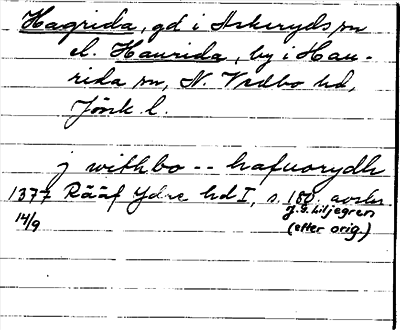 Hagrida, gd i Askeryds sn
el. Haurida, by i Hau-
rida sn, N. Vedbo hd,
Jönk l.
j withbo -- hafuorydh
1377 Rääf Ydre hd I, s. 180. avskr.
14/9 J. G. Liljegren
(efter orig.)